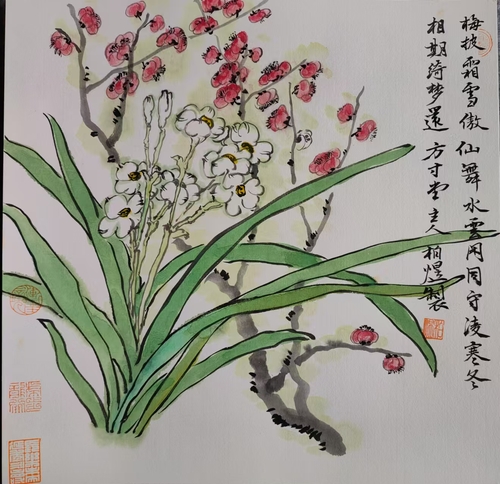 梅披霜雪傲仙舞水雲闲同守凌寒冬
相期绮梦還方寸堂主人柏煜製